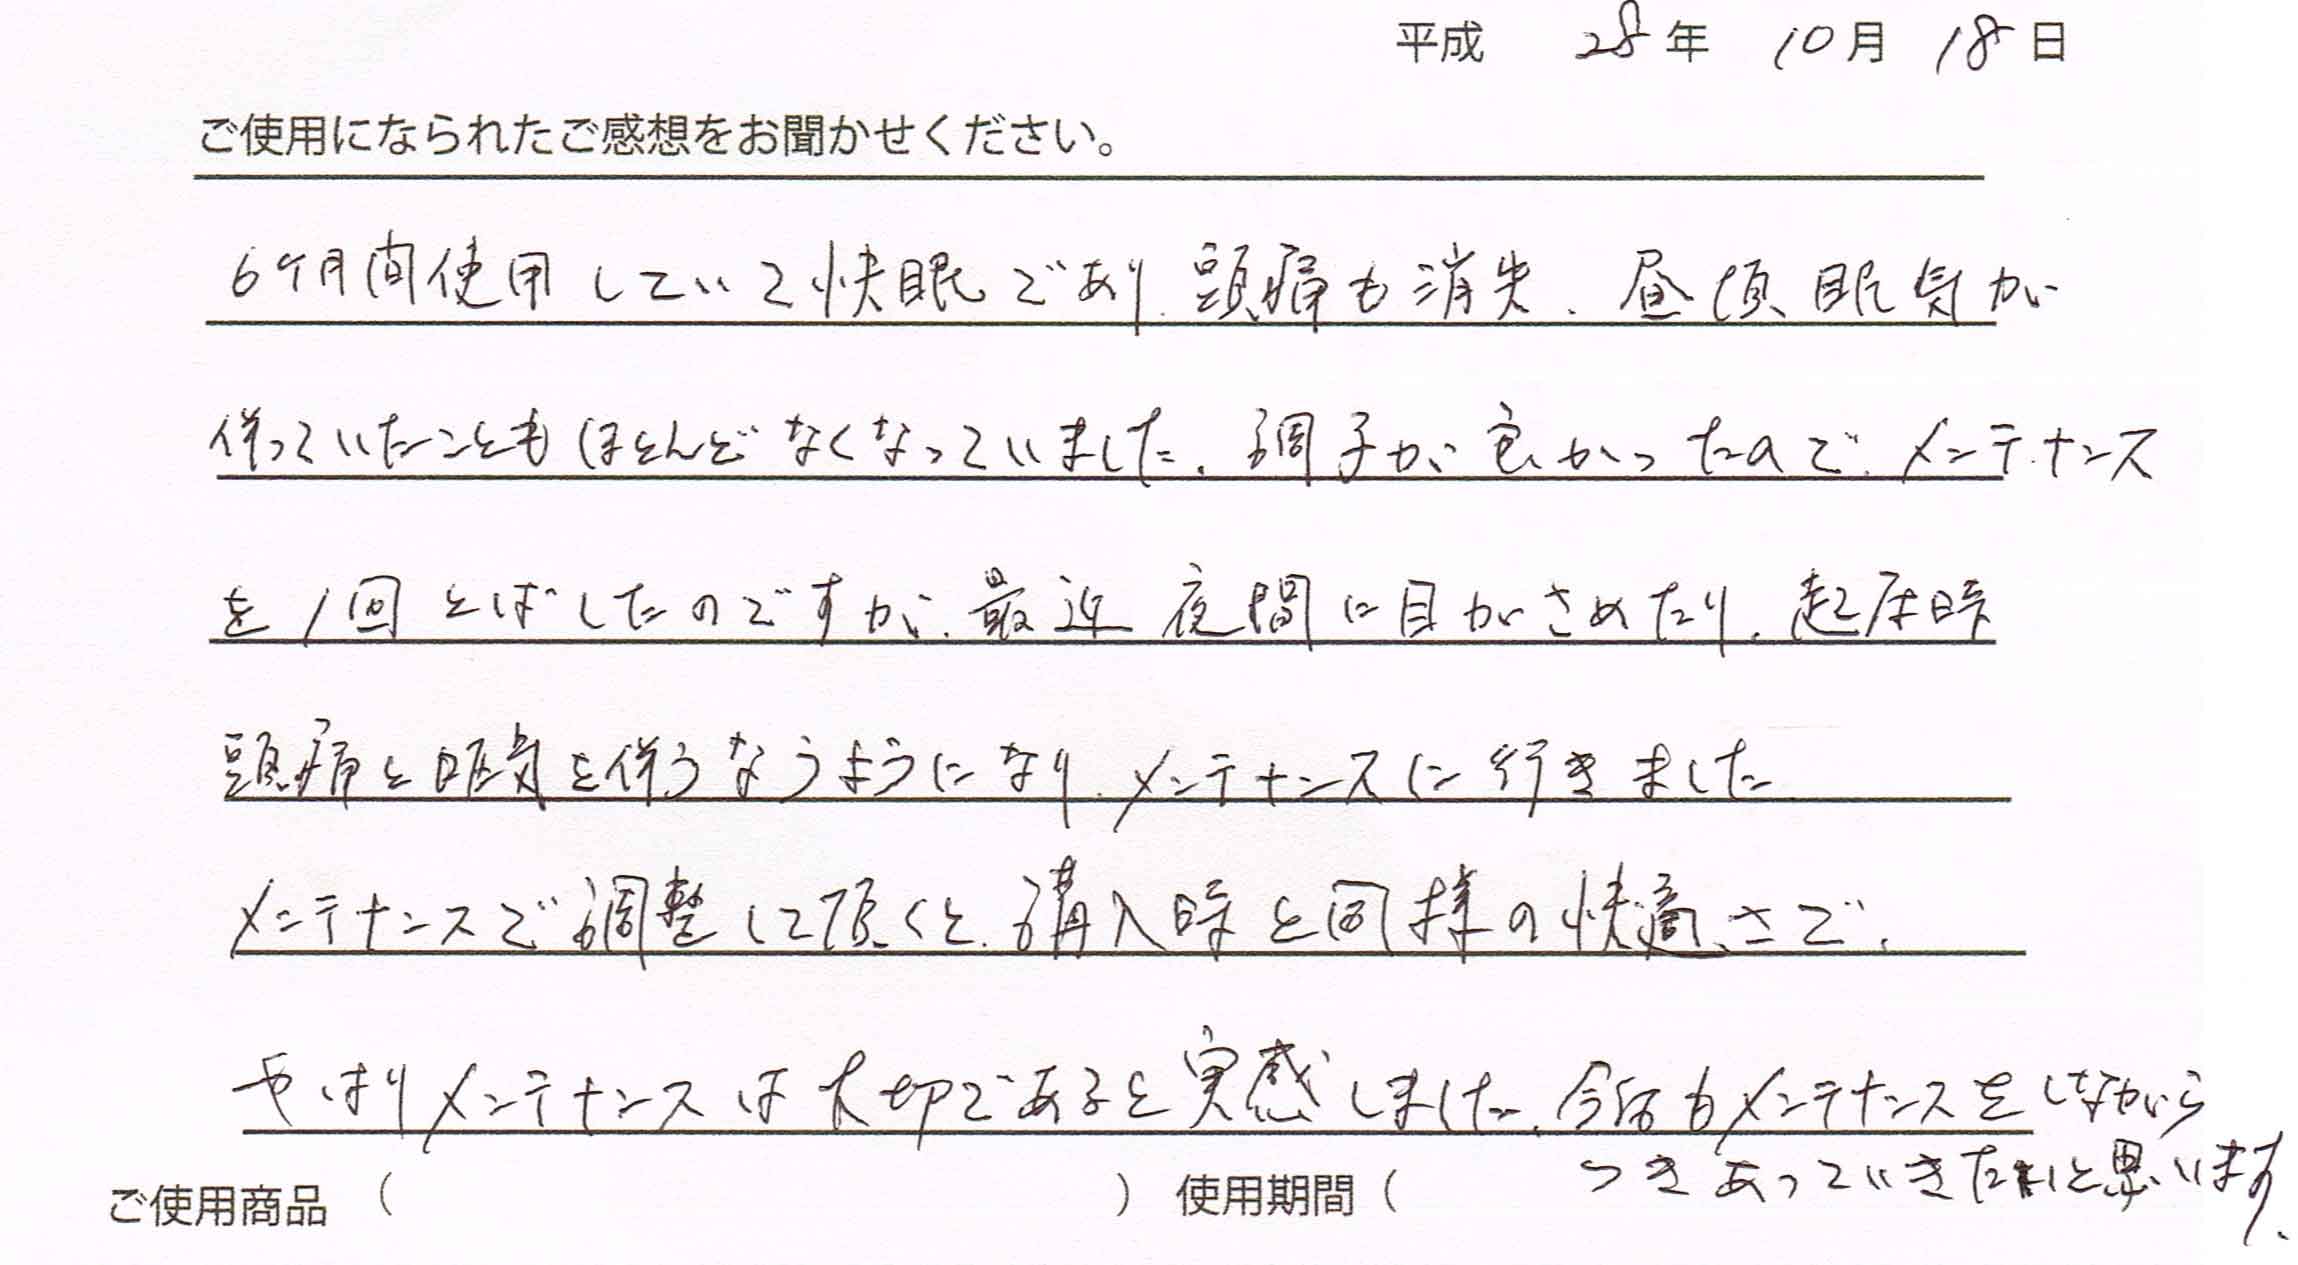 平成 28年 10月 18日
ご使用になられたご感想をお聞かせください。
6ケ月間使用していて快眠であり、頭痛も消失、昼頃眠気が
伴っていたこともほとんどなくなっていました。調子が良かったので、メンテナンス
を1回とばしたのですが、最近夜間に目がさめたり、起床時
頭痛と眠気を伴うなうようになり、メンテナンスに行きました
メンテナンスで調整して頂くと、購入時と同様の快適さで、
やはりメンテナンスは大切であると実感しました。今後もメンテナンスをしながら
つきあっていきたいと思います。
ご使用商品 ( ) 使用期間 (